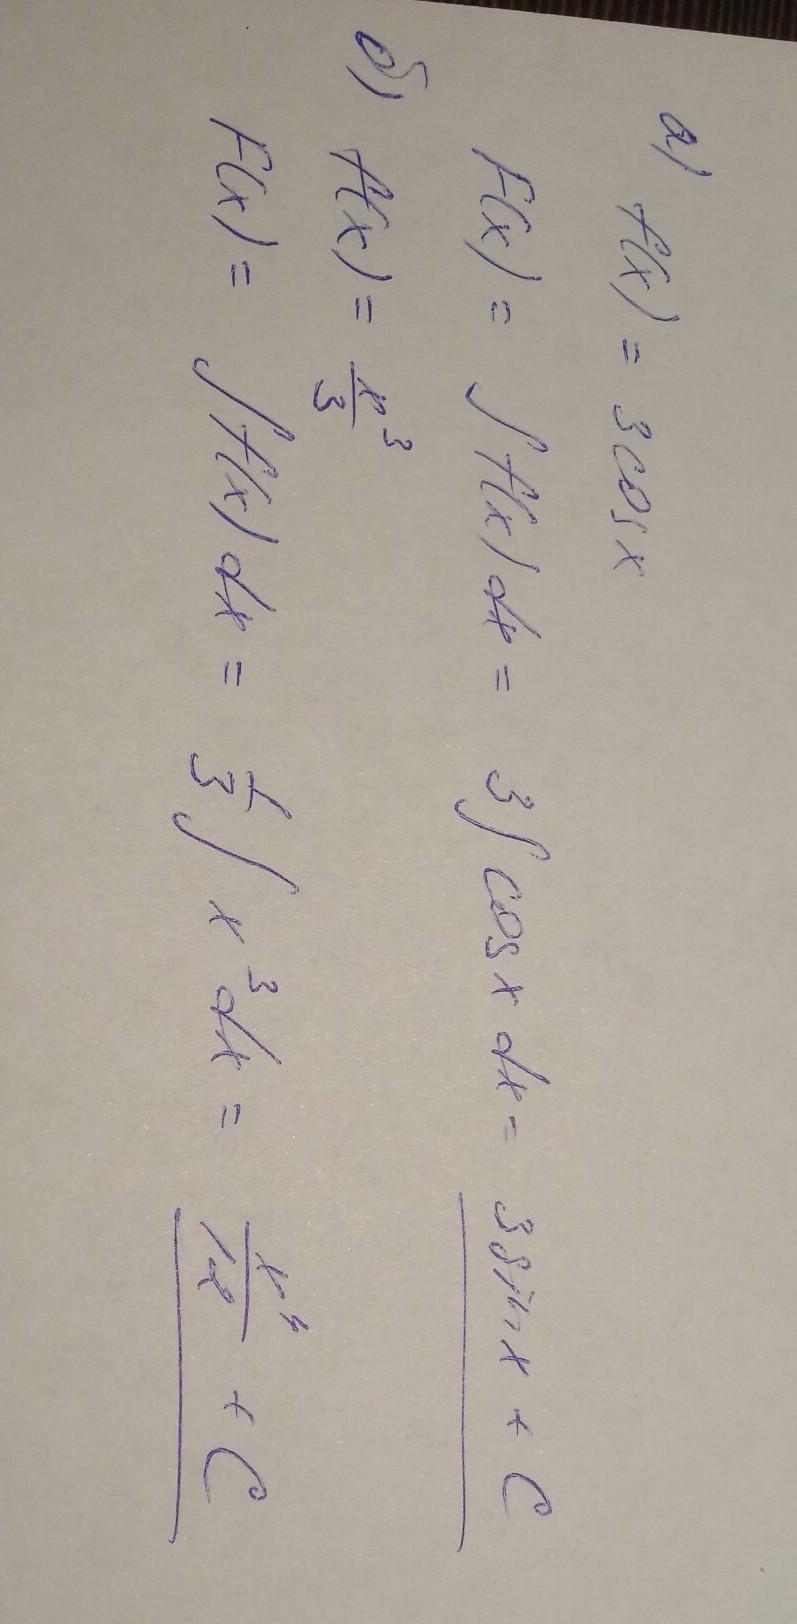 а) f(x) = 3cosx
F(x) = ∫f(x)dx = 3∫cosxdx = 3sinx + C
б) f(x) = x³/3
F(x) = ∫f(x)dx = 1/3∫x³dx = x⁴/12 + C